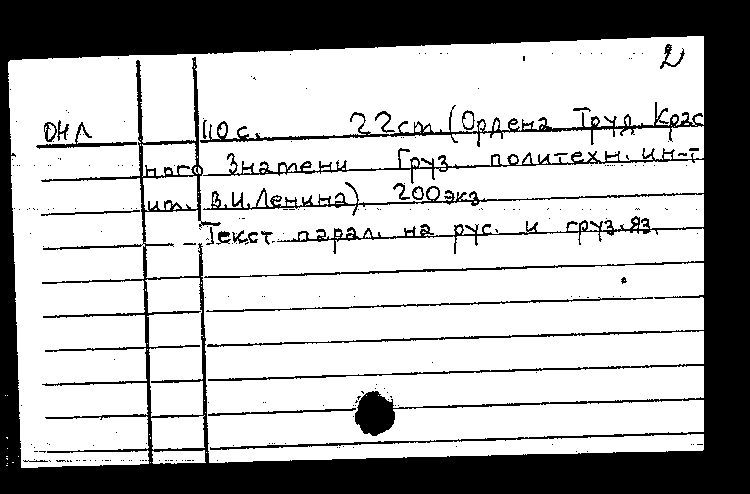 2
ОНЛ 110 с. 22 см. (Ордена Труд. Крас
ного Знамени Груз. политехн. ин-т
им. В.И. Ленина). 200 экз.
Текст парал. на рус. и груз. яз.